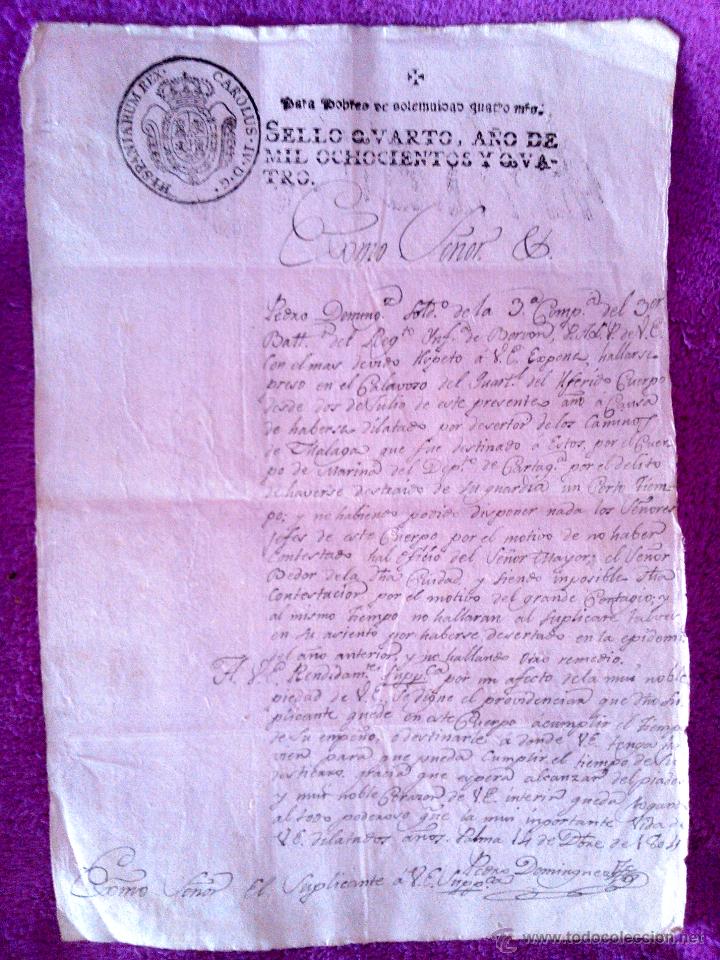 HISPANIARUM REX. CAROLUS. IV. D. G.
✠
Para Pobres de solemnidad quatro mrs.
SELLO QVARTO, AÑO DE
MIL OCHOCIENTOS Y QVA-
TRO.
Exmo Señor. &.
Pedro Doming.z Sold.o de la 3.a Comp.a del 3.er
Batt.n del Reg.to Inf.a de Borvon, P. A L. P. de V. E.
Con el mas devido Respeto á V. E. Expone, hallarse
preso en el Calavoso del Quart.l del Referido Cuerpo
desde dos de Julio de este presente año á Causa
de haberse dilatado por desertor de los Caminos
de Malaga que fue destinado á Estos, por el Cuer
po de Marina del Dep.to de Cartag.a por el delito
de haverse destraido de su guardia un Corto Tiem-
po; y no habiendo podido disponer nada los Señores
Jefes de este Cuerpo por el motivo de no haber
Contestado tal Oficio del Señor Mayor; el Señor
Dedor de la Cuidad y siendo inposible
Contestacion por el motivo del grande Contagio; y
al mismo Tiempo no hallaran al suplicate
en su asiento por haberse desertado en la epidemi
del año anterior, y no hallando otro remedio.
A. V. E. Rendidam.te Supp.ca por un afecto de la mui noble
piedad de V. E. se digne el providenciar que
plicante quede en este Cuerpo acumplir el Tiempo
de su empeño, o destinarle a donde V. E. tenga
vien para que pueda Cumplir el tiempo de su
destino. gracia que espera alcanzar del piado
y mui noble Corazon de V. E. interin queda
al todo poderoso que la mui inportante Vida de
V. E. dilatados años. Palma 14 de Dbre de 1804
Pedro Dominguez
Exmo Señor El Suplicante á V. E. Supp.ca
www.todocoleccion.net